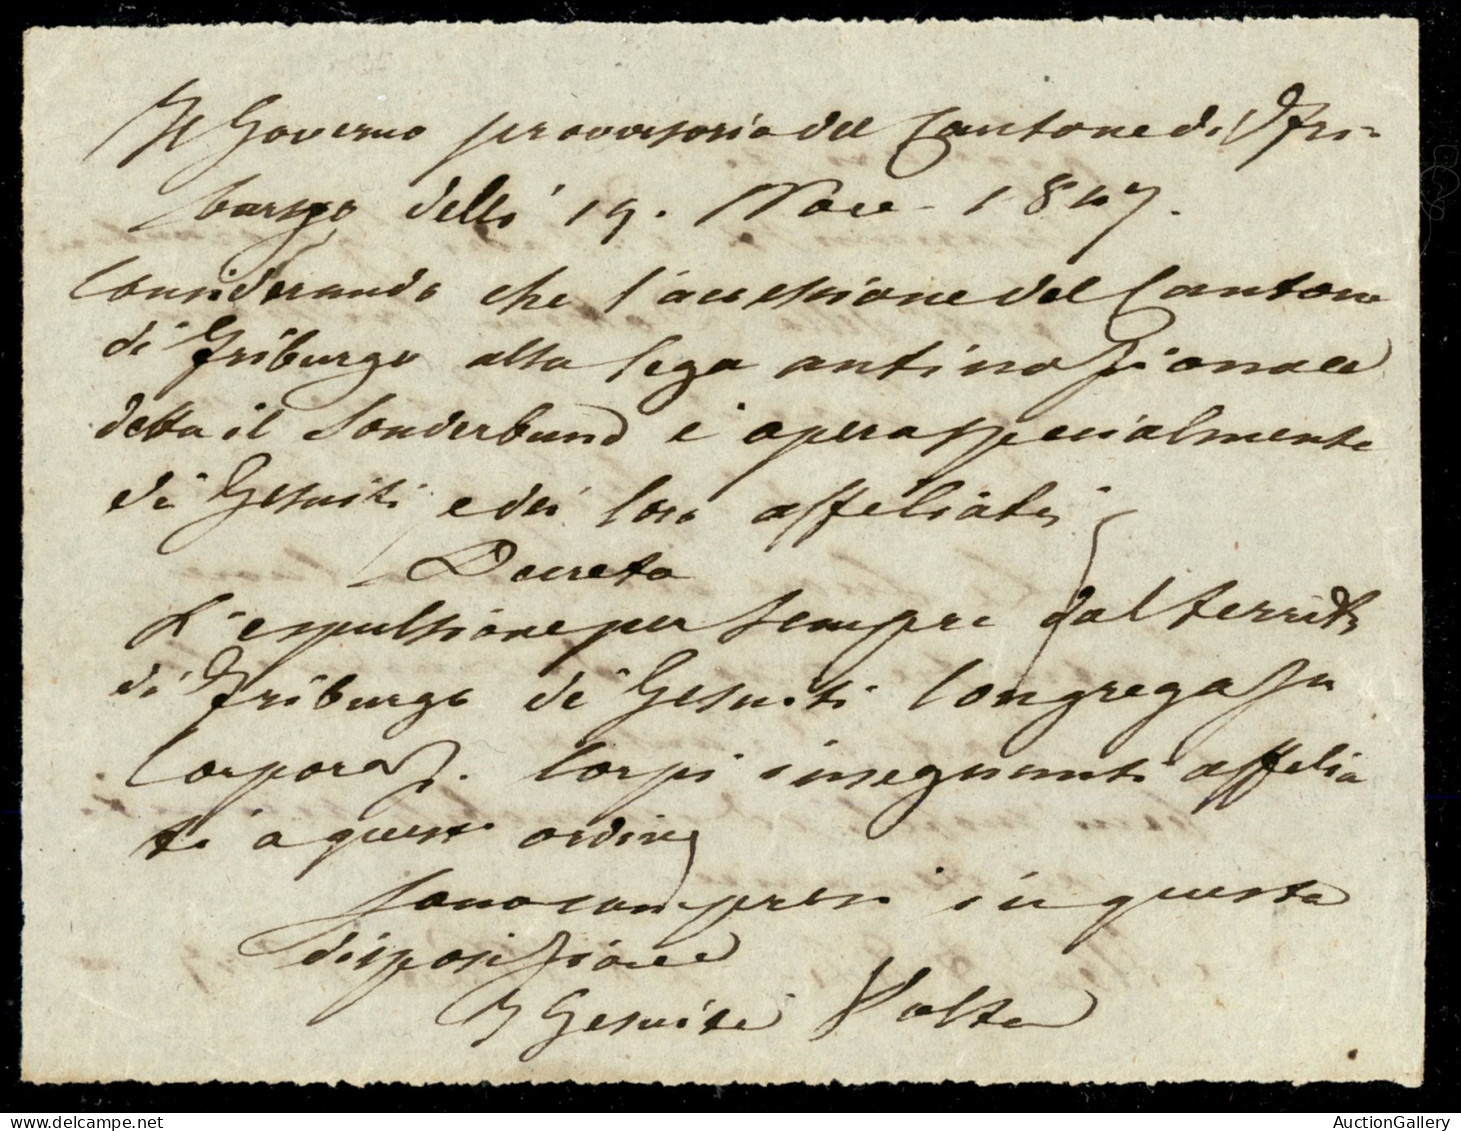 Il Governo provvisorio del Cantone di Fri-
burgo delli 19. Nove 1847.
Considerando che l'accessione del Cantone
di Friburgo alla lega antinazionale
detta il Sonderbund è opera specialmente
di Gesuiti e dei loro affiliati
Decreta
L'espulsione per sempre dal territo
di Friburgo di Gesuiti Congregaz
Corporaz. Corpi insegnanti affilia
ti a questi ordini
sono compresi in questa
disposizione
I Gesuiti Volta
AuctionGallery